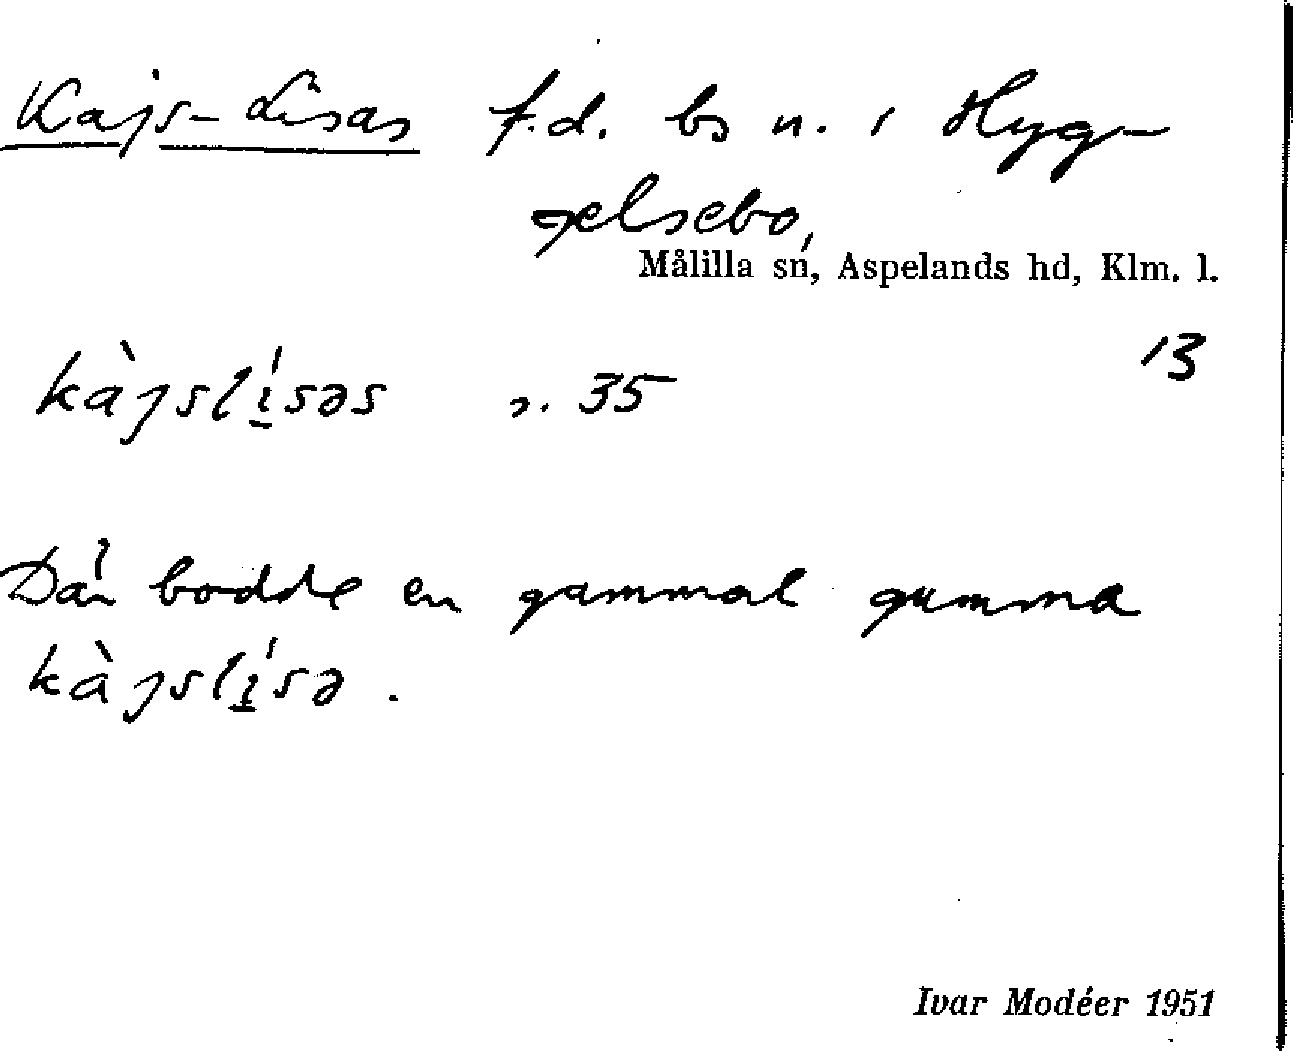 Kajs-Lisas f.d. bs n. i Hyg-
gelsebo,
Målilla sn, Aspelands hd, Klm. l.
13
kàjslísəs s. 35
Där bodde en gammal gumma
kàjslísə.
Ivar Modéer 1951